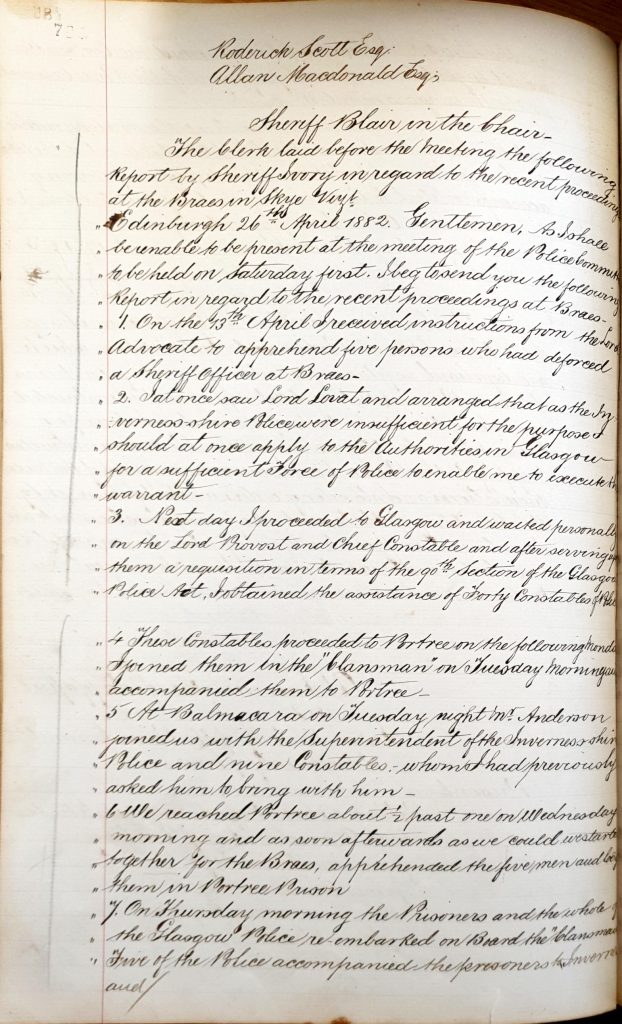 Roderick Scott Esq.
Allan Macdonald Esq.
Sheriff Blair in the Chair—
"The Clerk laid before the Meeting the following
Report by Sheriff Ivory in regard to the recent proceedings
at the Braes in Skye Vizt
" Edinburgh 26th April 1882. Gentlemen, As I shall
" be unable to be present at the meeting of the Police Committ
" to be held on Saturday first. I beg to send you the following
" Report in regard to the recent proceedings at Braes—
" 1. On the 13th April I received instructions from the Lord
" Advocate to apprehend five persons who had deforced
" a Sheriff Officer at Braes—
" 2. I at once saw Lord Lovat and arranged that as the In
" verness-shire Police were insufficient for the purpose I
" should at once apply to the Authorities in Glasgow
" for a sufficient Force of Police to enable me to execute th
" warrant—
" 3. Next day I proceeded to Glasgow and waited personally
" on the Lord Provost and Chief Constable and after serving
" them a requisition in terms of the 90th Section of the Glasgow
" Police Act, I obtained the assistance of Forty Constables of
" 4 These Constables proceeded to Portree on the following Monda
" I joined them in the "Clansman" on Tuesday Morning
" accompanied them to Portree—
" 5 At Balmacara on Tuesday night Mr. Anderson
" joined us with the Superintendent of the Inverness-shire
" Police and nine Constables,- whom I had previously
" asked him to bring with him—
" 6 We reached Portree about ½ past one on Wednesday
" morning and as soon afterwards as we could we starte
" together for the Braes, apprehended the five men and
" them in Portree Prison
" 7. On Thursday morning the Prisoners and the whole of
" the Glasgow Police re-embarked on Board the "Clansman
" Five of the Police accompanied the prisoners to Inverne
and/